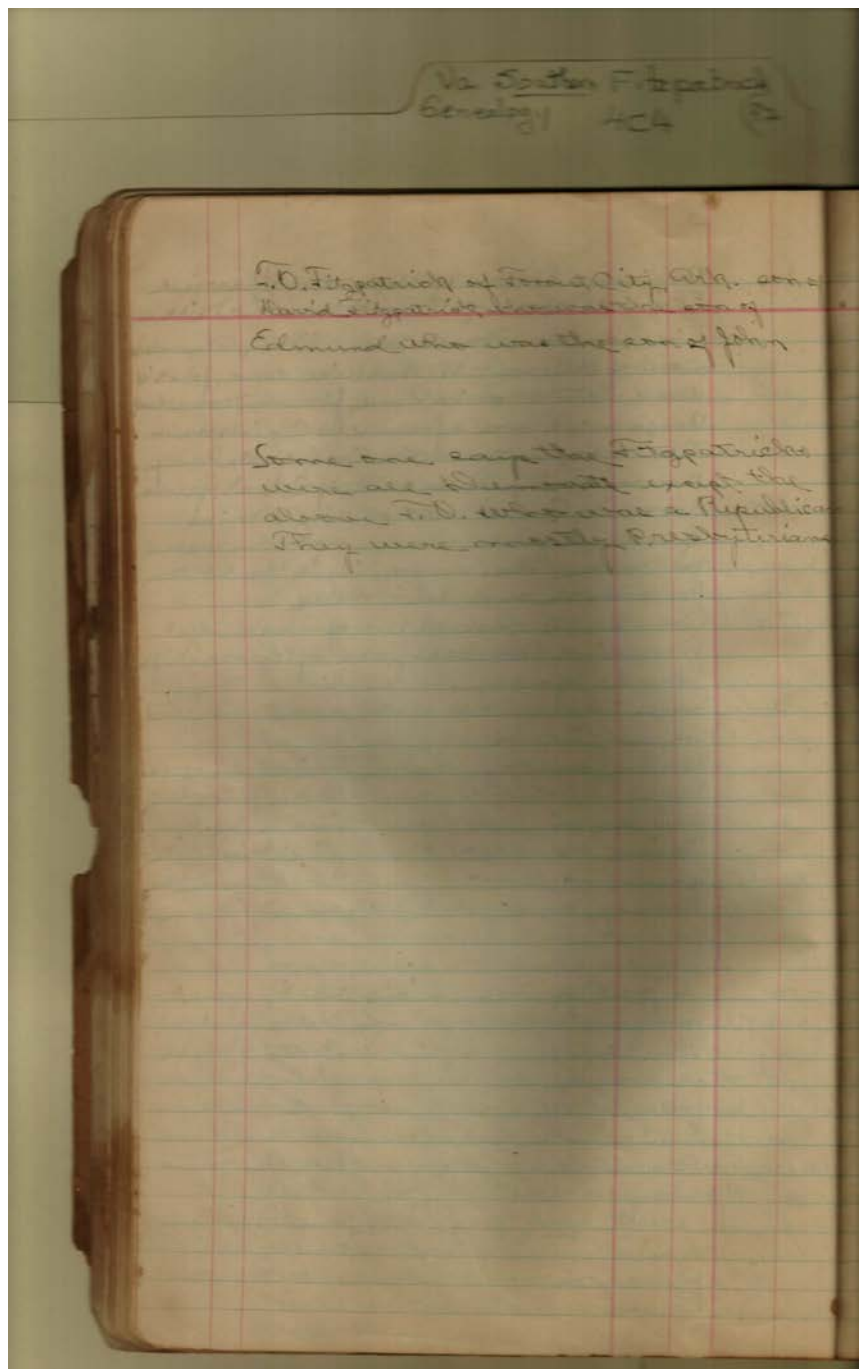 Va Southern Fitzpatrick
Genealogy 4C4
F.D. Fitzpatrick of Forrest City Ark. son of
David Fitzpatrick son of
Edmund who was the son of John
Some one says the Fitzpatricks
were all Democrats except the
above F.D. who was a Republican
They were mostly Presbyterians